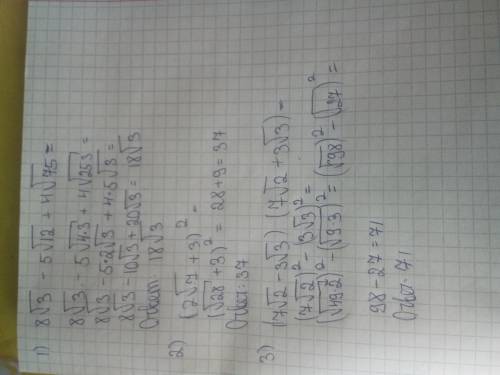 1) 8√3 - 5√12 + 4√75 =
8√3 - 5√4·3 + 4√25·3 =
8√3 - 5·2√3 + 4·5√3 =
8√3 - 10√3 + 20√3 = 18√3
Ответ: 18√3
2) (2√7 + 3)² =
(√28 + 3)² = 28+9 = 37
Ответ: 37
3) (7√2 - 3√3) (7√2 + 3√3) =
(7√2)² - (3√3)² =
(√49·2)² - (√9·3)² = (√98)² - (√27)² =
98 - 27 = 71
Ответ: 71